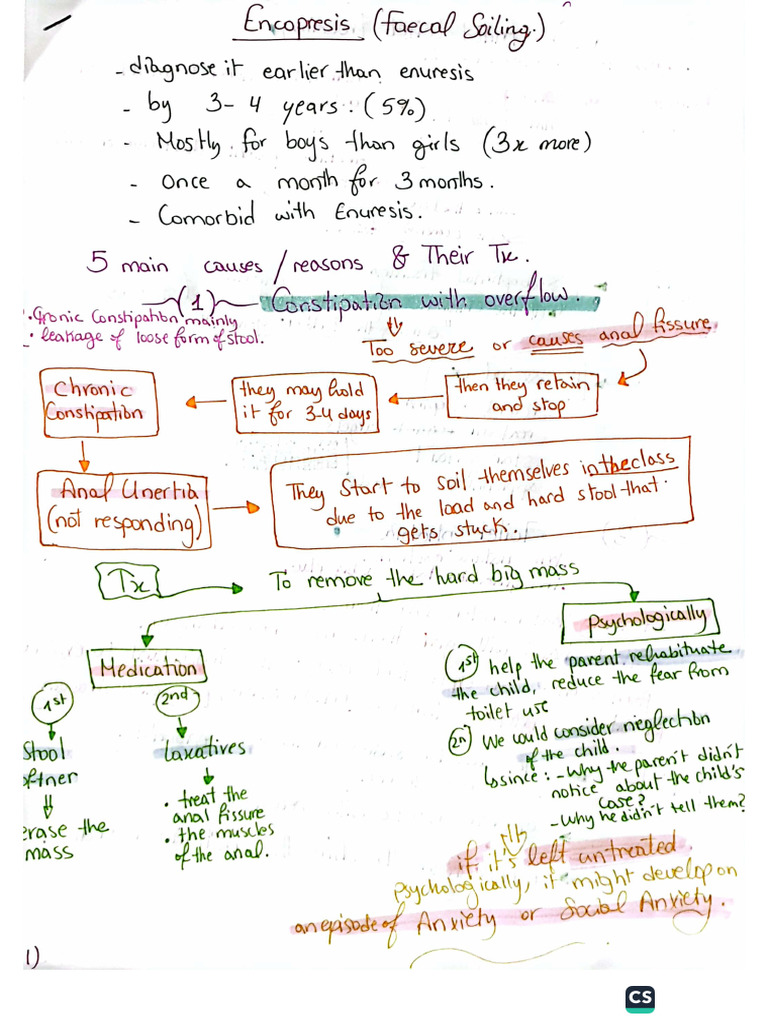 Encopresis (Faecal Soiling.)
- diagnose it earlier than enuresis
- by 3-4 years: (5%)
- Mostly for boys than girls (3x more)
- Once a month for 3 months.
- Comorbid with Enuresis.
5 main causes/reasons & Their Tx.
(1) Constipation with overflow.
• Cronic Constipation mainly
• leakage of loose form of stool.
Too severe or causes anal fissure
then they retain
and stop
they may hold
it for 3-4 days
Chronic
Constipation
Anal Unertia
(not responding)
They Start to soil themselves in the class
due to the load and hard stool that
gets stuck.
Tx
To remove the hard big mass
Medication
1st
Stool
oftner
erase the
mass
2nd
Laxatives
• treat the
anal fissure
• the muscles
of the anal.
Psychologically
1st help the parent rehabituate
the child, reduce the fear from
toilet use
2n We would consider neglection
of the child.
since: - Why the parent didn't
notice about the child's
case?
- Why he didn't tell them?
if it's left untreated
Psychologically, it might develop on
an episode of Anxiety or Social Anxiety.
1)
CS